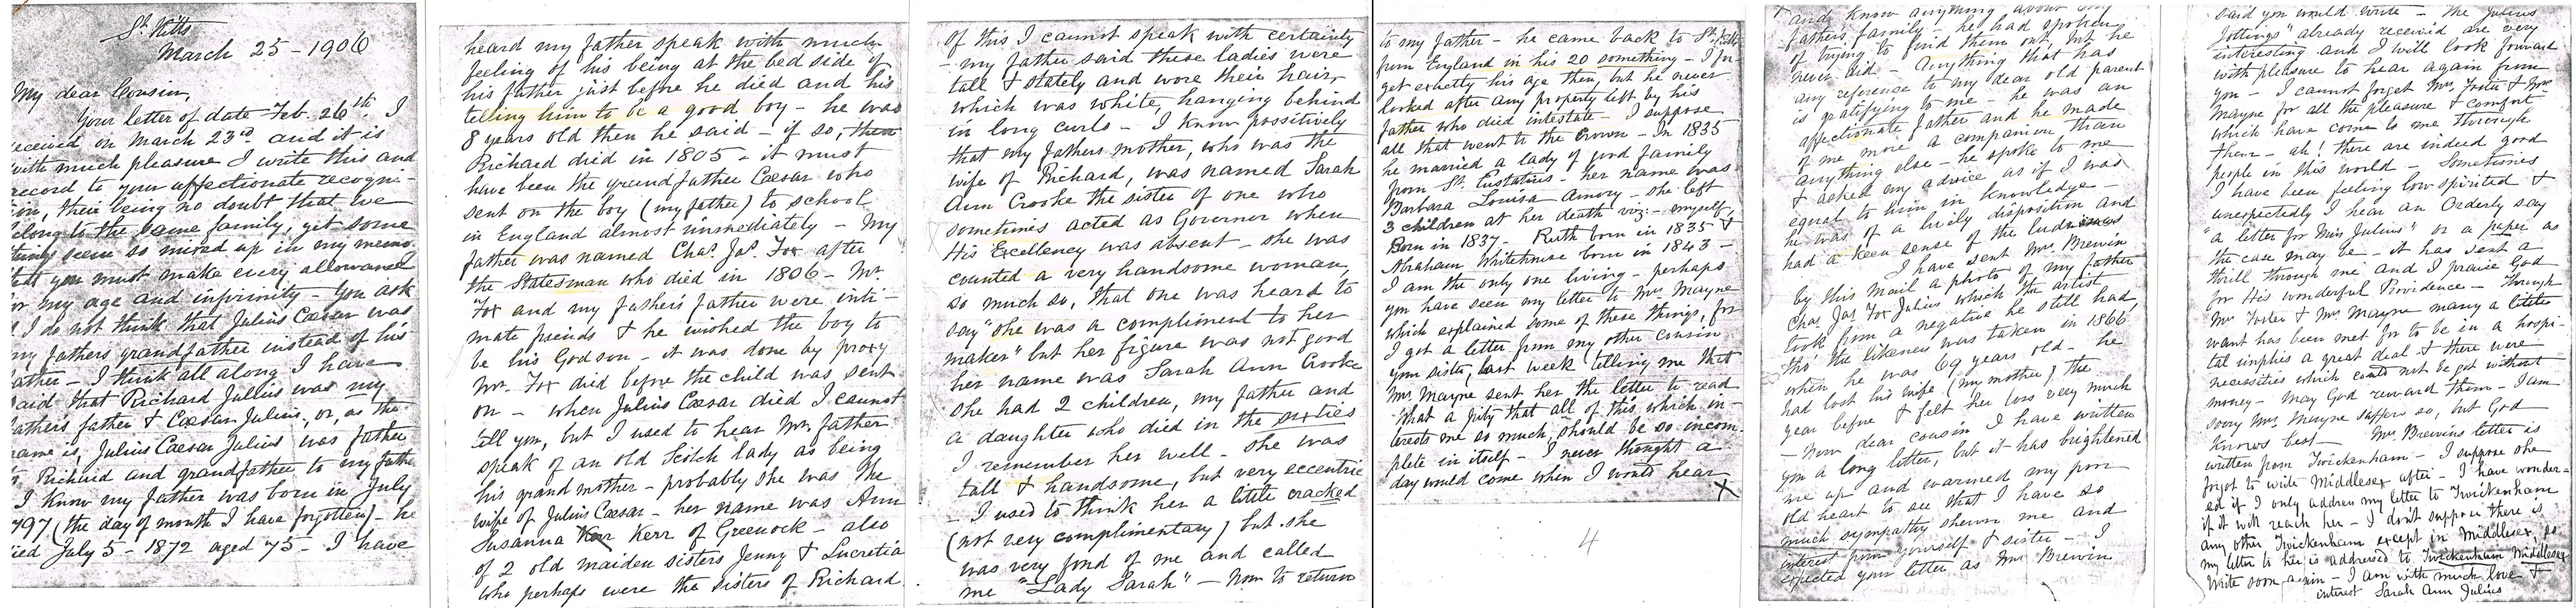 St. Kitts
March 25 - 1906
My dear Cousin,
Your letter of date Feb. 26th I
eceived on March 23rd and it is
with much pleasure I write this and
record to your affectionate recogni-
ion, their being no doubt that we
elong to the same family, yet some
things seem so mixed up in my memo.
that you must make every allowance
or my age and infirmity - You ask
I do not think that Julius Caesar was
my fathers grandfather instead of his
ather - I think all along I have
aid that Richard Julius was my
athers father & Caesar Julius, or, as the
name is, Julius Caesar Julius was father
to Richard and grandfather to my fathe
I know my father was born in July
797 (the day of month I have forgotten) - he
ied July 5 - 1872 aged 75 - I have
heard my father speak with much
feeling of his being at the bed side of
his father just before he died and his
telling him to be a good boy - he was
8 years old then he said - if so, then
Richard died in 1805 - it must
have been the grandfather Caesar who
sent on the boy (my father) to school
in England almost immediately - My
father was named Chas. Jas. Fox after
the Statesman who died in 1806 - Mr.
Fox and my father's father were inti-
mate friends & he wished the boy to
be his Godson - it was done by proxy
Mr. Fox died before the child was sent
on - when Julius Caesar died I cannot
tell you, but I used to hear my father
speak of an old Scotch lady as being
his grandmother - probably she was the
wife of Julius Caesar - her name was Ann
Susanna Kerr of Greenock - also
of 2 old maiden sisters Jenny & Lucretia
who perhaps were the sisters of Richard
Of this I cannot speak with certainty
- my father said these ladies were
tall & stately and wore their hair,
which was white, hanging behind
in long curls - I know possitively
that my fathers mother, who was the
wife of Richard, was named Sarah
Ann Crooke the sister of one who
sometimes acted as Governor when
His Excellency was absent - she was
counted a very handsome woman,
so much so, that one was heard to
say "she was a compliment to her
maker" but her figure was not good
her name was Sarah Ann Crooke
she had 2 children, my father and
a daughter who died in the sixties
I remember her well - she was
tall & handsome, but very eccentric
- I used to think her a little cracked
(not very complimentary) but she
was very fond of me and called
me "Lady Sarah" - Now to return
to my father - he came back to St. Kitts
from England in his 20 something - I for-
get exactly his age then, but he never
looked after any property left by his
father who died intestate - I suppose
all that went to the Crown - In 1835
he married a lady of good family
from St. Eustatius - her name was
Barbara Louisa Amory - she left
3 children at her death viz: - myself,
Born in 1837 - Ruth born in 1835 &
Abraham Whitehouse born in 1843 -
I am the only one living - perhaps
you have seen my letter to Mrs. Mayne
which explained some of these things, for
I got a letter from my other cousin
your sister, last week telling me that
Mrs. Mayne sent her the letter to read
What a pity that all of this, which in-
terests me so much, should be so incom-
plete in itself - I never thought a
day would come when I would hear
X
4
and know anything about my
fathers family - he had spoken
of trying to find them out, but he
never did - Anything that has
any reference to my dear old parent
is gratifying to me - he was an
affectionate father and he made
of me more a companion than
anything else - he spoke to me
& asked my advice as if I was
equal to him in knowledge -
he was of a lively disposition and
had a keen sense of the ludicrous
I have sent Mrs. Brewin
by this mail a photo of my father
Chas. Jas. Fox Julius which the artist
took from a negative he still had,
tho' the likeness was taken in 1866,
when he was 69 years old - he
had lost his wife (my mother) the
year before & felt her loss very much
- Now dear cousin I have written
you a long letter, but it has brightened
me up and warmed my poor
old heart to see that I have so
much sympathy shewn me and
interest from yourself & sister - I
expected your letter as Mrs Brewin
said you would write - The Julius
Jottings" already received are very
interesting and I will look forward
with pleasure to hear again from
you - I cannot forget Mrs. Foster & Mrs
Mayne for all the pleasure & comfort
which have come to me through
them - ah! there are indeed good
people in this world - Sometimes
I have been feeling low spirited &
unexpectedly I hear an Orderly say
"a letter for Miss Julius" or a paper as
the case may be - it has sent a
thrill through me and I praise God
for His wonderful Providence - Through
Mrs Foster & Mrs Mayne many a little
want has been met for to be in a hospi-
tal implies a great deal & there were
necessities which could not be got without
money - May God reward them - I am
sorry Mrs. Mayne suffers so, but God
knows best - Mrs. Brewins letter is
written from Twickenham - I suppose she
forgot to write Middlesex after - I have wonder-
ed if I only address my letter to Twickenham
if it will reach her - I don't suppose there is
any other Twickenham except in Middlesex, so
my letter to her is addressed to Twickenham Middlesex
Write soon again - I am with much love &
interest Sarah Ann Julius